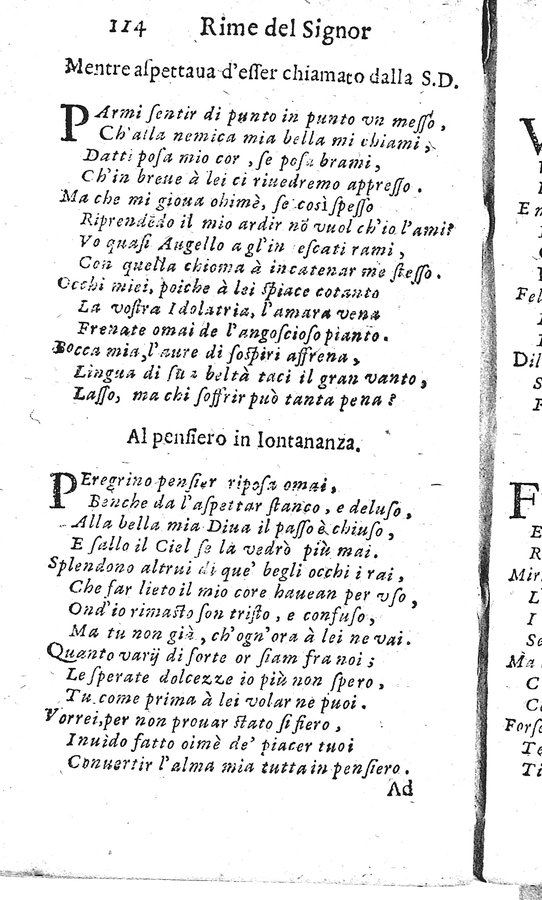 114 Rime del Signor
Mentre aſpettaua d'eſſer chiamato dalla S.D.
PArmi ſentir di punto in punto vn meſſo,
Ch'alla nemica mia bella mi chiami,
Datti poſa mio cor, ſe poſa brami,
Ch'in breue à lei ci riuedremo appreſſo.
Ma che mi gioua ohimè, ſe così ſpeſſo
Riprendẽdo il mio ardir nõ vuol ch'io l'ami?
Vo quaſi Augello a gl'in eſcati rami,
Con quella chioma à incatenar me ſteſſo.
Occhi miei, poiche à lei ſpiace cotanto
La voſtra Idolatria, l'amara vena
Frenate omai de l'angoſcioſo pianto.
Bocca mia, l'aure di ſoſpiri affrena,
Lingua di ſua beltà taci il gran vanto,
Laſſo, ma chi ſoffrir può tanta pena?
Al penſiero in lontananza.
PEregrino penſier ripoſa omai,
Benche da l'aſpettar ſtanco, e deluſo,
Alla bella mia Diua il paſſo è chiuſo,
E ſallo il Ciel ſe la vedrò più mai.
Splendono altrui di que' begli occhi i rai,
Che far lieto il mio core hauean per vſo,
Ond'io rimaſto ſon triſto, e confuſo,
Ma tu non già, ch'ogn'ora à lei ne vai.
Quanto varij di ſorte or ſiam fra noi;
Le ſperate dolcezze io più non ſpero,
Tu come prima à lei volar ne puoi.
Vorrei, per non prouar ſtato ſi fiero,
Inuido fatto oimè de' piacer tuoi
Conuertir l'alma mia tutta in penſiero.
Ad
V
E n
Fel
Dil
S
F
F
E
R
Mir
L'
I
Se
Ma
C
Co
Forſe
Te
Ti